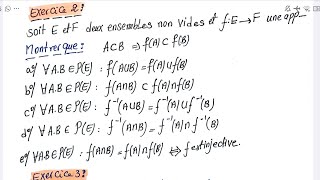 Exercice 2:
soit E et F deux ensembles non vides et f: E→F une app_
Montrer que: A⊂B ⇒ f(A)⊂f(B)
a) ∀A.B∈P(E): f(A∪B)=f(A)∪f(B)
b) ∀A.B∈P(E): f(A∩B)⊂f(A)∩f(B)
c) ∀A.B∈P(E): f⁻¹(A∪B)=f⁻¹(A)∪f⁻¹(B)
d) ∀A.B∈P(E): f⁻¹(A∩B)=f⁻¹(A)∩f⁻¹(B)
e) ∀A.B∈P(E): f(A∩B)=f(A)∩f(B) ⇔ f est injective.
Exercice 3: